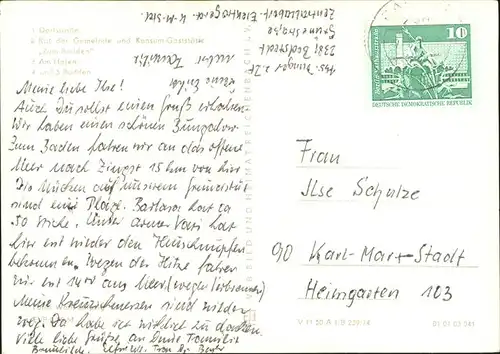 1 Dorfstraße
2 Rat der Gemeinde und Konsum-Gaststätte
"Zum Bodden"
3 Am Hafen
4 und 5 Bodden
Meine liebe Ilse!
Auch Du sollst einen Gruß erhalten.
Wir haben einen schönen Bungalow.
Zum Baden fahren wir an das offene
Meer nach Zingst 15 km von hier
Die Mücken auf unserem Grundstück
sind eine Plage. Barbara hat ca
50 Stiche. Unser armer Vati hat
hier erst wieder den Heuschnupfen
bekommen. Wegen der Hitze fahren
wir erst 14 00 ans Meer
Meine Kreuzschmerzen sind wieder
weg. Da habe ich wirklich zu danken.
Viele liebe Grüße an Deine Familie
VERLAG UND HEIMAT REICHENBACH
10
DEUTSCHE DEMOKRATISCHE REPUBLIK
Frau
Ilse Schulze
90 Karl-Marx-Stadt
Heimgarten 103
V 11 50 A 1/B 229/14
01 01 03 041